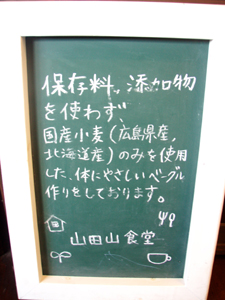 保存料、添加物
を使わず、
国産小麦(広島県産,
北海道産)のみを使用
した、体にやさしいベーグル
作りをしております。
山田山食堂